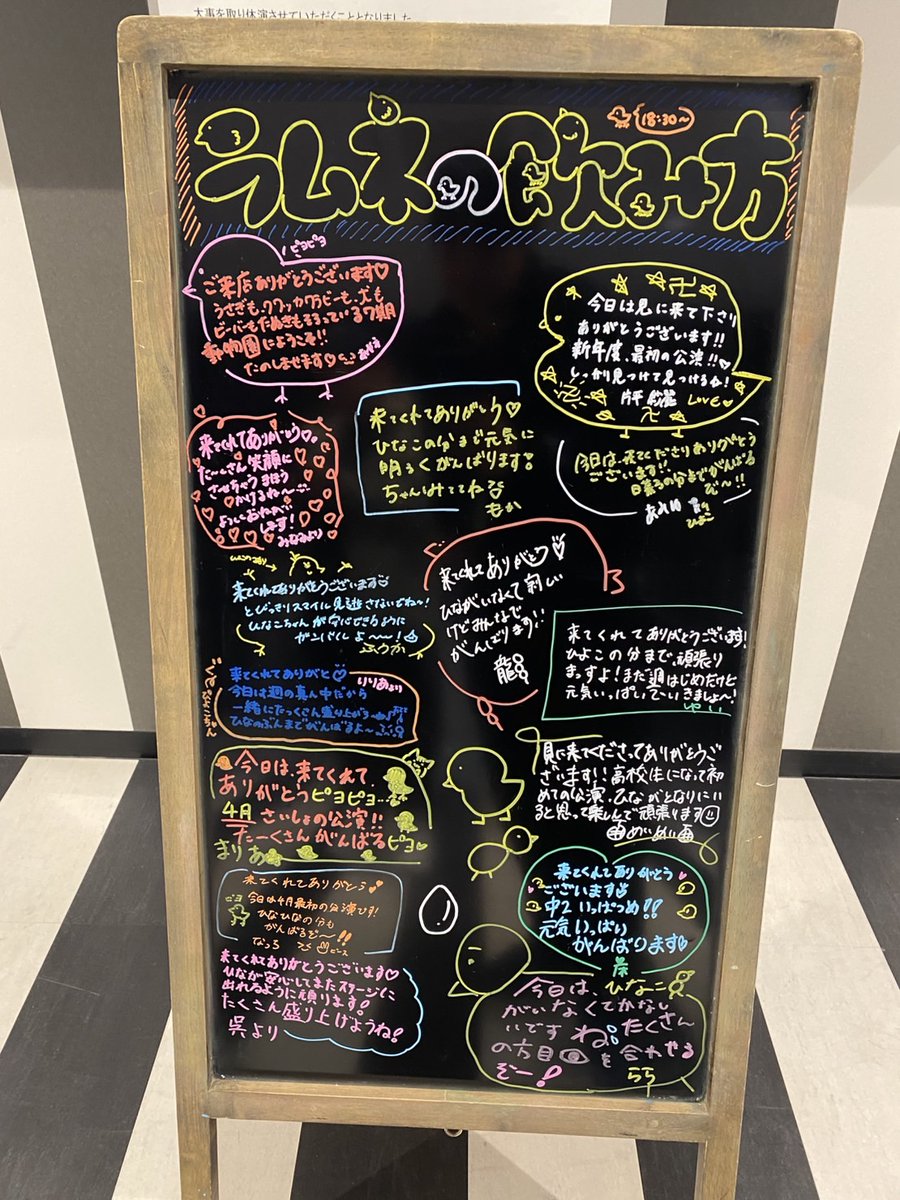 大事を取り休演させていただくこととなりました
18:30~
ラムネの飲み方
ピヨピヨ
ご来店ありがとうございます♡
うさぎも、クワッカワラビーも、犬も
ビーバーもたぬきもそろっている7期
動物園にようこそ!!
たのしませます♡
あやき
今日は見に来て下さり
ありがとうございます!!
新年度、最初の公演!!
しっかり見つけて見つける
LOVE
来てくれてありがとう♡
ひなこの分まで元気に
明るくがんばります!
ちゃんみててね
もか
来てくれてありがとう♡
たーくさん笑顔に
させちゃうまほう
かけるね〜
よろしくおねがい
します!
みなみより
今日は、来てくださりありがとう
ございます!!
日菜子の分までがんばる
ぞ〜!!
来てくれてありがとうございます
とびっきりスマイル見逃さないでね〜!
ひなこちゃんが安心できるように
ガンバくしよ〜〜!
ふうか
来てくれてありがとう♡
ひながいなくて寂しい
けどみんなで
がんばります!!
龍
来てくれてありがとうございます!
ひよこの分まで、頑張り
まっすよ!まだ週はじめだけど
元気いっぱいでいきましょ〜!
ゆい
来てくれてありがと♡
りりあより
今日は週の真ん中だから
一緒にたっくさん盛り上がろ
ひなのぶんまでがんばるよ〜
今日は、来てくれて
ありがとうピヨピヨ…
4月さいしょの公演!!
たーくさんがんばるピヨ
まりあ
見に来てくださってありがとうご
ざいます!!高校生になって初
めての公演、ひながとなりにい
ると思って楽しんで頑張ります
めいめい
来てくれてありがとう
今日は4月最初の公演です!
ひなひなの分も
がんばるぞ〜!!
なっち
ピース
来てくれてありがとう
ございます
中2いっぱつめ!!
元気いっぱい
がんばります
来てくれてありがとうございます♡
ひなが安心してまたステージに
出れるように頑ります!
たくさん盛り上げようね!
呉より
今日は、ひなこ
がいなくてかなし
いですね。たくさん
の方目を合わせる
ぞー!
らら